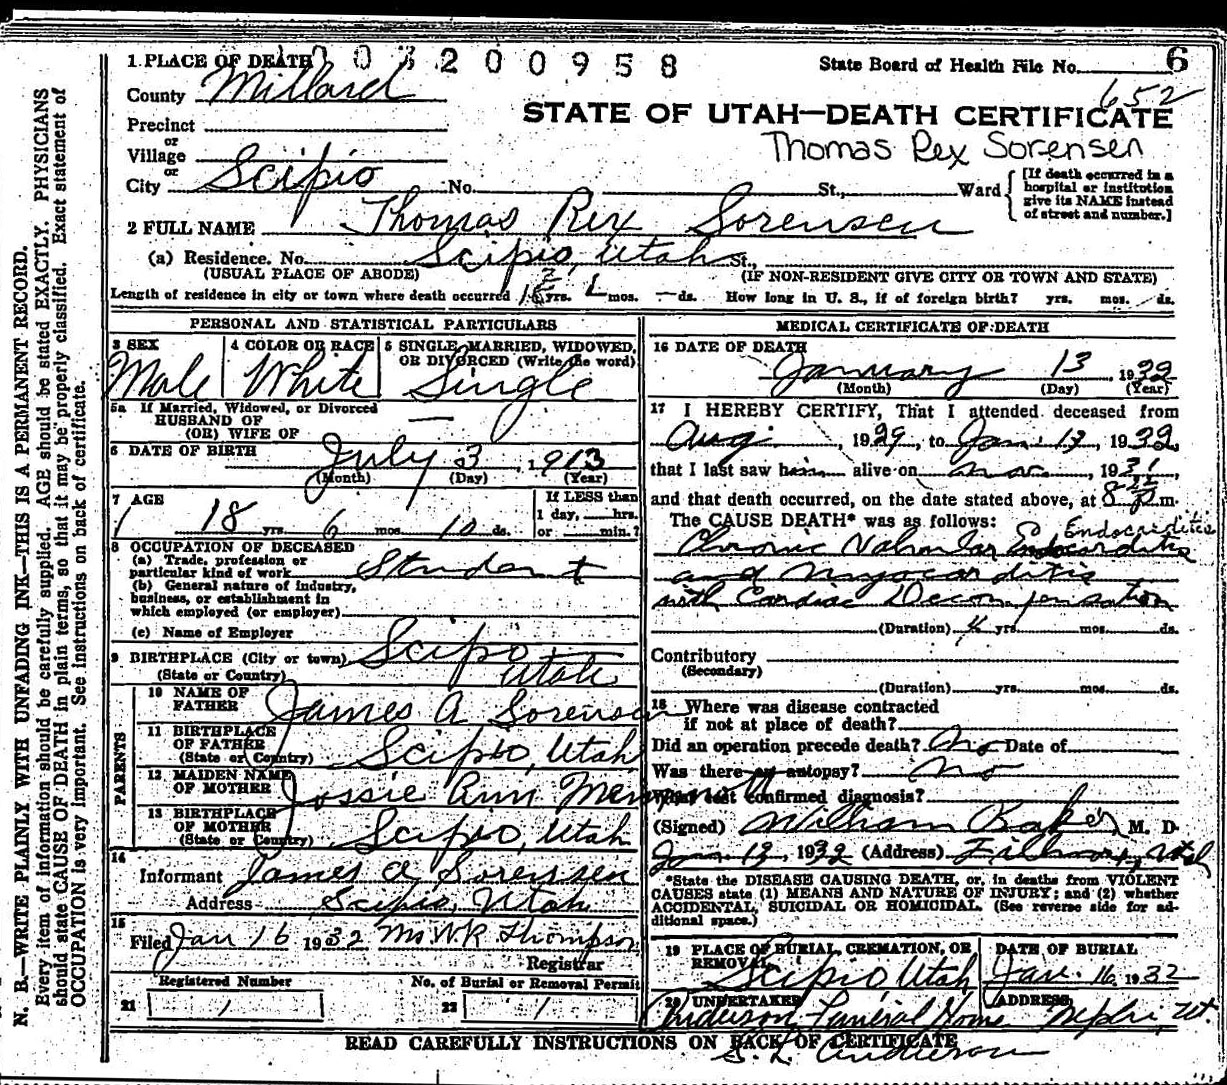 1 PLACE OF DEATH 1003200958 State Board of Health File No. 6
County Millard 652
STATE OF UTAH—DEATH CERTIFICATE
Precinct
or
Village
or
City Scipio No. St., Ward
Thomas Rex Sorensen
[If death occurred in a hospital or institution give its NAME instead of street and number.]
2 FULL NAME Thomas Rex Sorensen
(a) Residence. No. Scipio, Utah St.,
(USUAL PLACE OF ABODE) (IF NON-RESIDENT GIVE CITY OR TOWN AND STATE)
Length of residence in city or town where death occurred yrs. mos. — ds. How long in U. S., if of foreign birth? yrs. mos. ds.
PERSONAL AND STATISTICAL PARTICULARS
3 SEX 4 COLOR OR RACE 5 SINGLE, MARRIED, WIDOWED,
OR DIVORCED (Write the word)
Male White Single
5a If Married, Widowed, or Divorced
HUSBAND OF
(OR) WIFE OF —
6 DATE OF BIRTH July 3, 1913
(Month) (Day) (Year)
7 AGE If LESS than
1 day, hrs.
18 yrs. 6 mos. 10 ds. or min.?
8 OCCUPATION OF DECEASED
(a) Trade, profession or
particular kind of work Student
(b) General nature of industry,
business, or establishment in
which employed (or employer)
(c) Name of Employer
9 BIRTHPLACE (City or town) Scipio
(State or Country) Utah
PARENTS
10 NAME OF
FATHER James A Sorensen
11 BIRTHPLACE
OF FATHER
(State or Country) Scipio, Utah
12 MAIDEN NAME
OF MOTHER Jossie Ann
13 BIRTHPLACE
OF MOTHER
(State or Country) Scipio, Utah
14
Informant James A Sorenssen
Address Scipio, Utah
15
Filed Jan 16 1932 Ms WR Thompson
Registrar
Registered Number No. of Burial or Removal Permit
21 1 22 1
MEDICAL CERTIFICATE OF DEATH
16 DATE OF DEATH
January 13, 1932
(Month) (Day) (Year)
17 I HEREBY CERTIFY, That I attended deceased from
Aug. 1929, to Jan. 13, 1932,
that I last saw him alive on Nov. 1931
and that death occurred, on the date stated above, at m.
The CAUSE DEATH* was as follows: Endocarditis
Chronic Valvular Endocarditis
and Myocarditis
with Cardiac Decompensation
(Duration) 4 yrs. mos. ds.
Contributory
(Secondary)
(Duration) yrs. mos. ds.
18 Where was disease contracted
if not at place of death?
Did an operation precede death? No Date of
Was there an autopsy? No
What test confirmed diagnosis?
(Signed) William Baker M. D.
Jan. 13, 1932 (Address) Fillmore, Utah
*State the DISEASE CAUSING DEATH, or, in deaths from VIOLENT
CAUSES state (1) MEANS AND NATURE OF INJURY; and (2) whether
ACCIDENTAL, SUICIDAL OR HOMICIDAL. (See reverse side for ad-
ditional space.)
19 PLACE OF BURIAL, CREMATION, OR DATE OF BURIAL
REMOVAL Scipio Utah Jan. 16. 1932
20 UNDERTAKER ADDRESS
Anderson Funeral Home Nephi, Ut.
S. L. Anderson
READ CAREFULLY INSTRUCTIONS ON BACK OF CERTIFICATE
N. B.—WRITE PLAINLY, WITH UNFADING INK—THIS IS A PERMANENT RECORD.
Every item of information should be carefully supplied. AGE should be stated EXACTLY. PHYSICIANS
should state CAUSE OF DEATH in plain terms, so that it may be properly classified. Exact statement of
OCCUPATION is very important. See instructions on back of certificate.